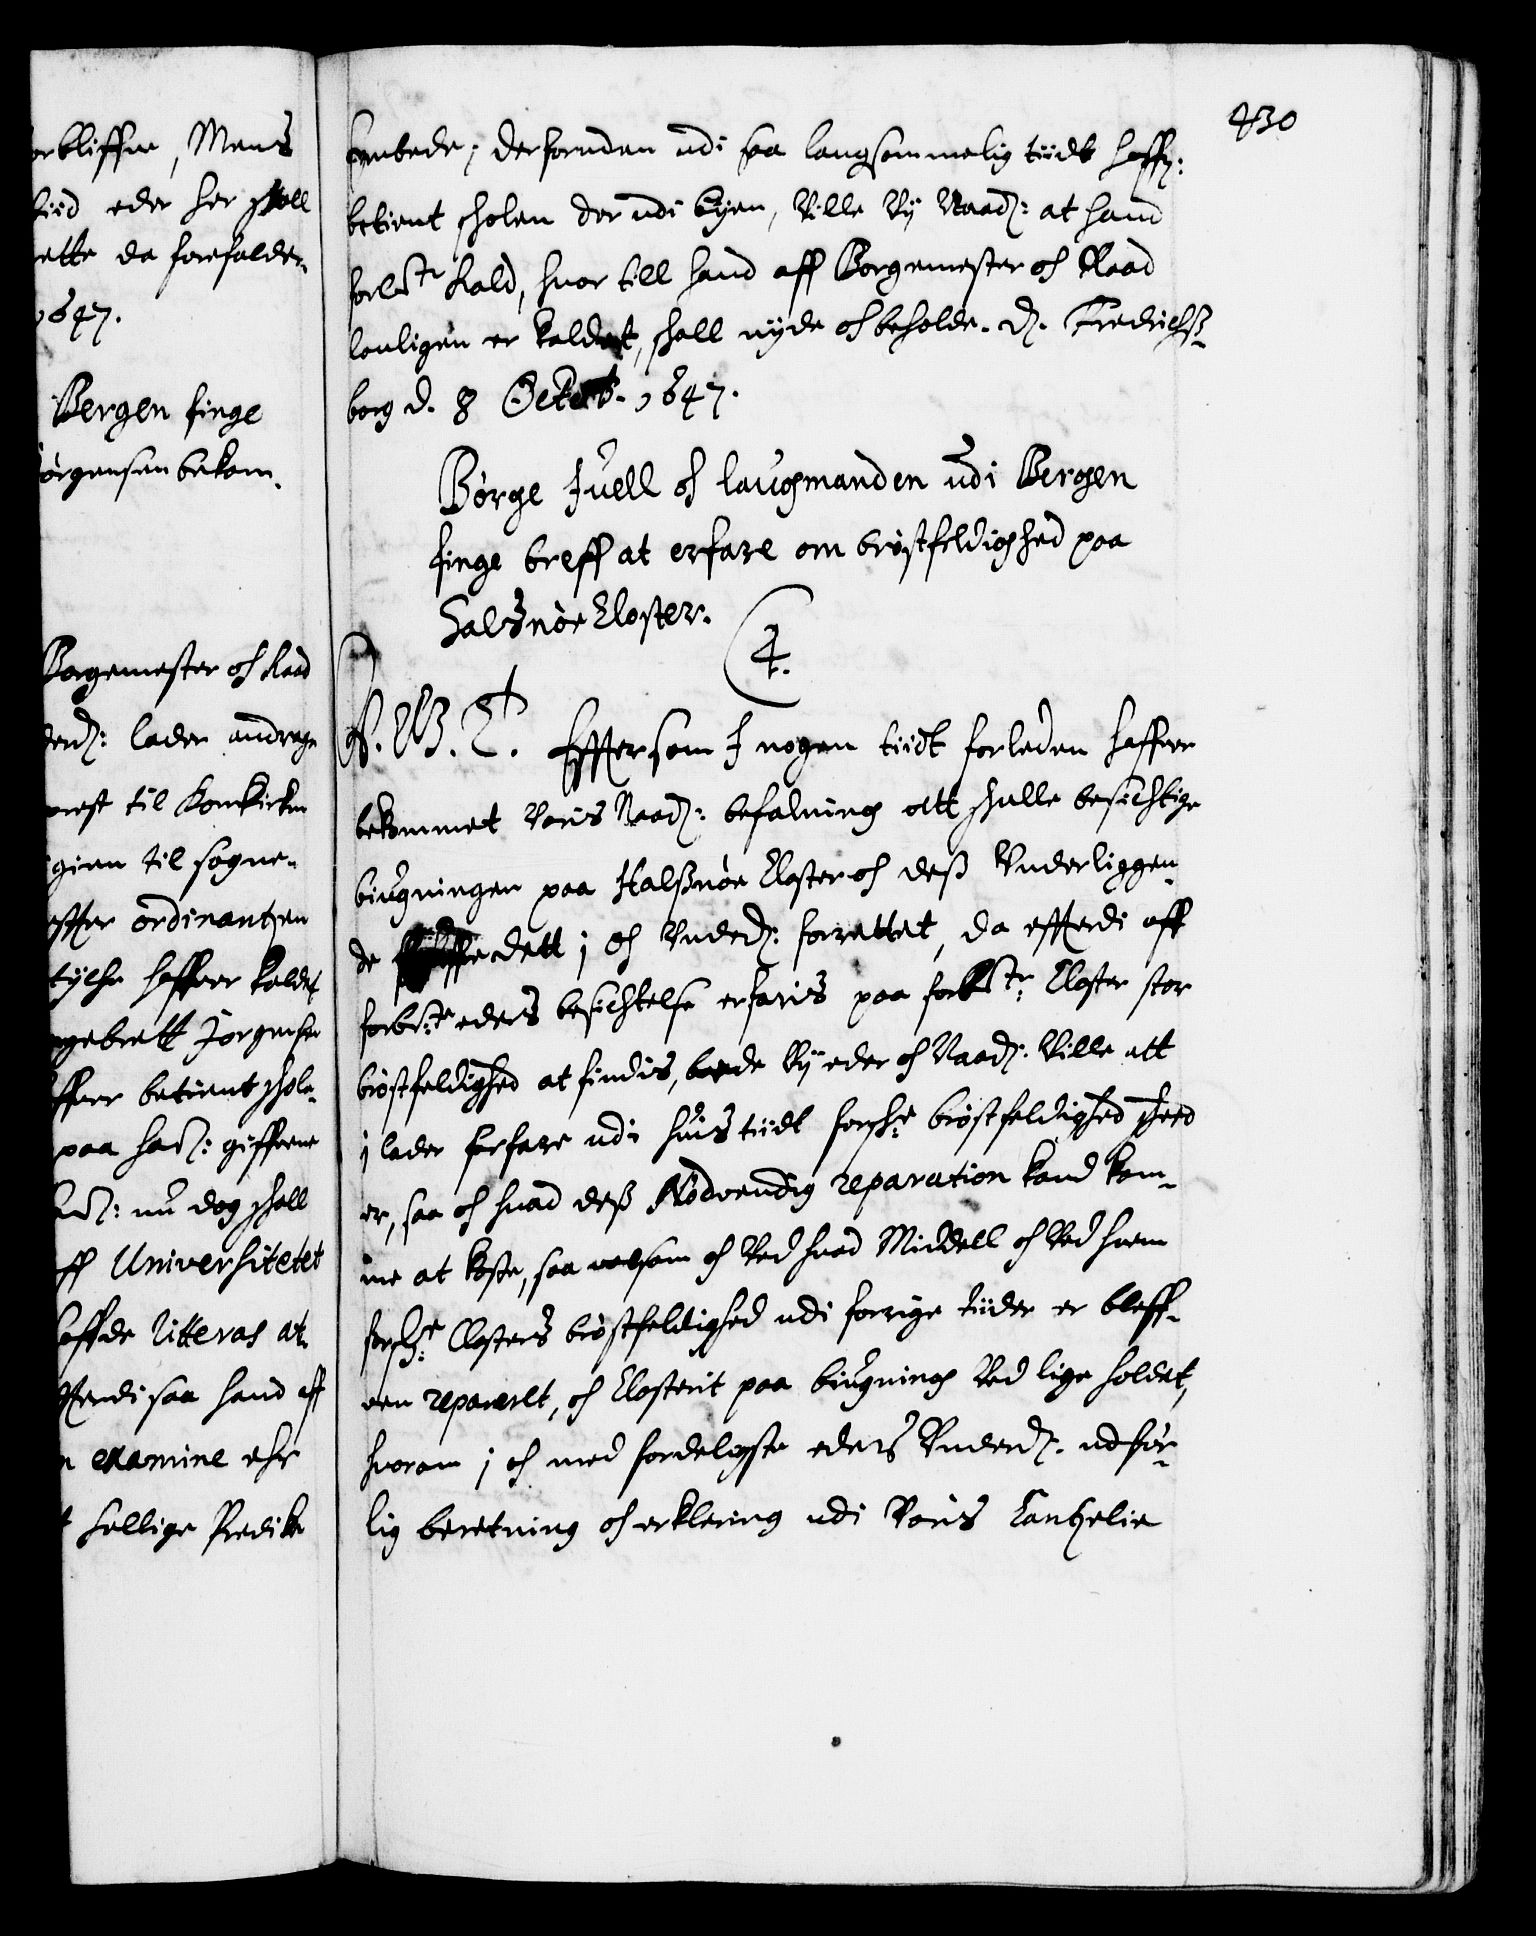 orbliffue, Mens
tiid eder her skall
rette da forefalder.
1647.
Bergen finge
Jørgensen bekom.
Borgemester oc Raad
lader andrage
prest til Domkircken
igien til sogne-
effter ordinantzen
haffuer kaldet
ngebrett Jørgensen
ffuer betient skole-
paa giffuene
nu dog skall
ff Universitetet
haffde litteras at-
fferdi saa hand aff
n examine ehr
t hellige Predike
430
embede, desforuden udi saa langsommelig tiidt haffr:
betient skolen der udi byen, Ville Vij Naad: at hand
forbte kald, huor till hand aff Borgemester oc Raad
louligen er kaldet, skall nyde oc beholde. D. Fredrichß-
borg d. 8 Octob. 1647.
Børge Juell oc laugmanden udi Bergen
finge breff at erfare om brøstfeldighed paa
Halsnøe Closter.
C 4.
V. G. T. Effter som I nogen tiidt forleden haffuer
bekommet Voris Naad: befalning att skulle besichtige
biugningen paa Halßnøe Closter oc deß Vnderliggen-
de dett j oc Vnderd: forrettet, da effterdi aff
forbte eders besichtelse erfaris paa forbte Closter stor
brøstfeldighed at findis, bede Vij eder oc Naad: Ville att
j lader forfare udi huis tiidt forschne brøstfeldighed skeed
er, saa oc huad deß Nødvendig reparation kand kom-
me at koste, saa velsom oc Ved huad Middell oc Ved huem
forschne Closters brøstfeldighed udi forrige tiider er bleff-
uen reparerlt, oc Closterit paa biugning Ved lige holdet,
huorom j oc med forderligste eders Vnderd: udfør-
lig beretning oc erklering udi Voris Cantzelie